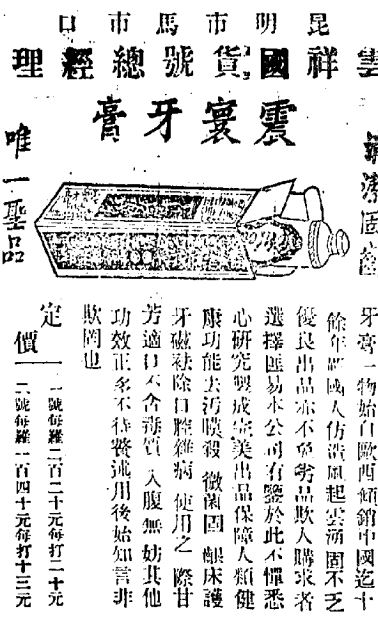 昆明市馬市口
雲祥國貨號總經理
震寰牙膏
潔固齒
唯一聖品
牙膏一物始自歐西傾銷中國迄十
餘年經國人仿造風起雲湧固不乏
優良出品亦不免劣品欺人購求者
選擇匪易本公司有鑒於此不憚悉
心研究製成完美出品保障人類健
康功能去污膜殺黴菌固齦床護
牙磁祛除口腔雜病使用之際甘
芳適口不含毒質入腹無妨其他
功效正多不待贅述用後始知言非
欺罔也
定價
一號每羅二百二十元每打二十元
二號每羅一百四十元每打十三元